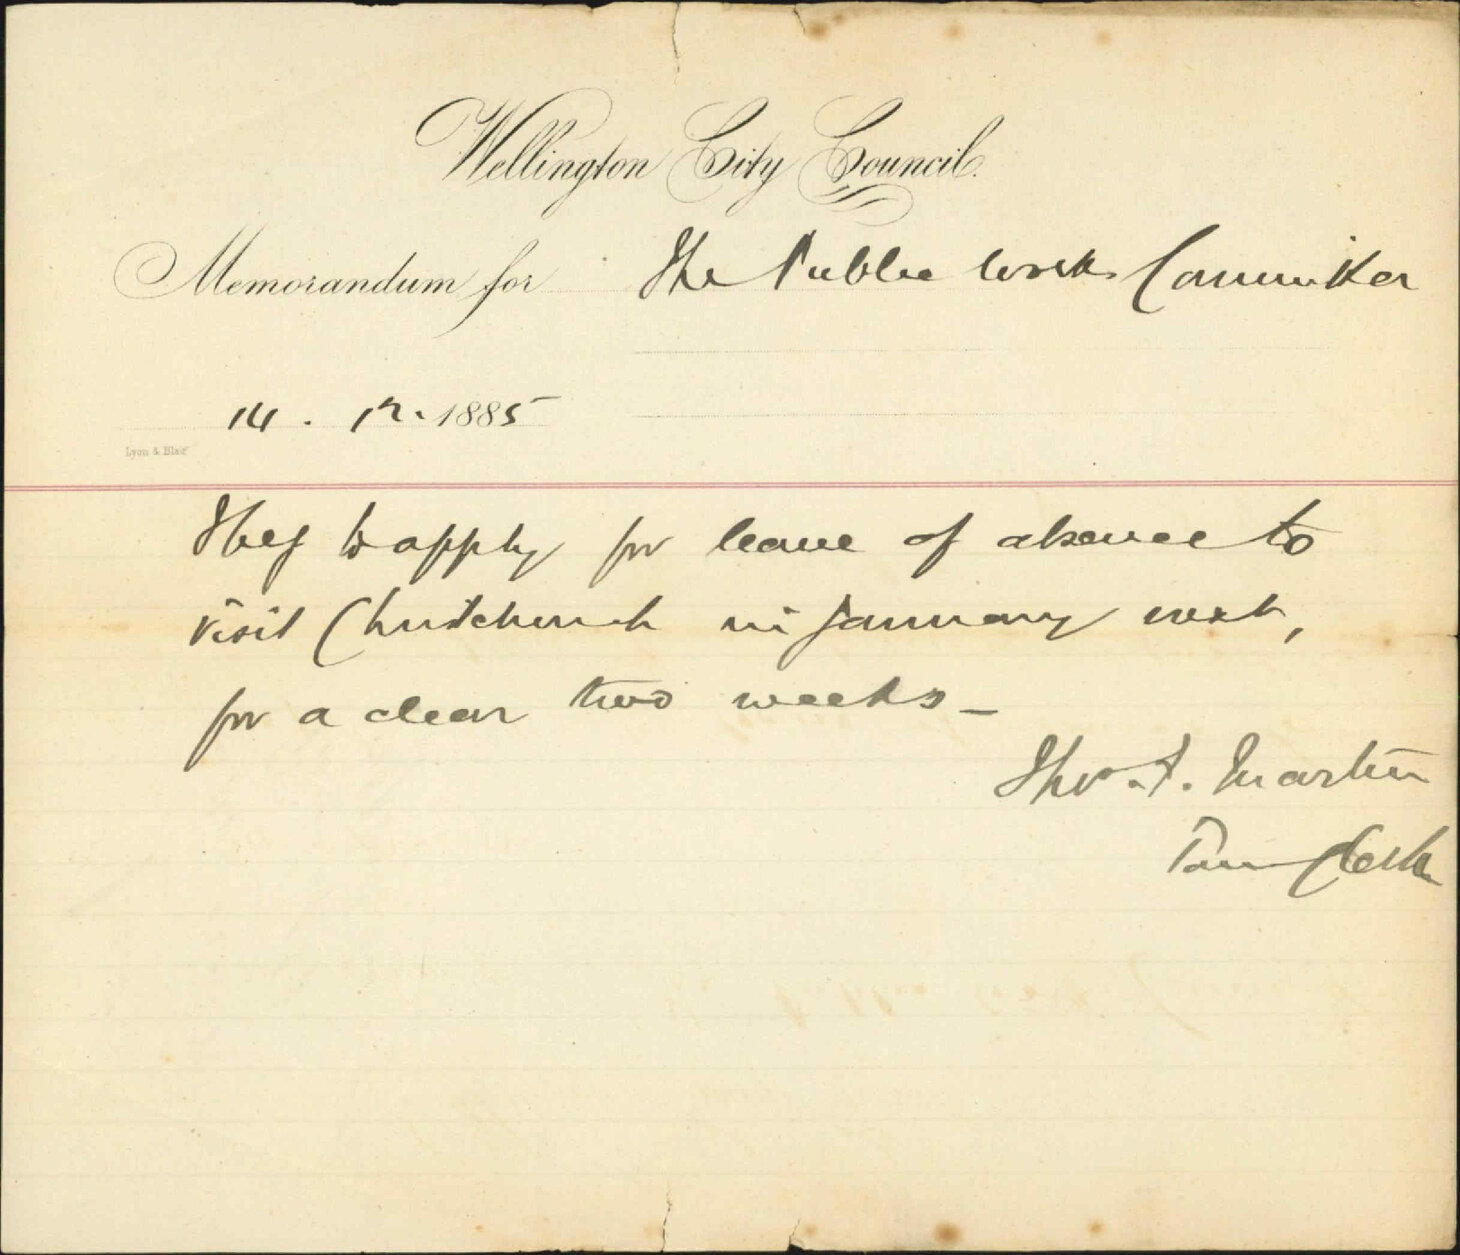 Wellington City Council.
Memorandum for The Public Works Committee
14. 12. 1885
Lyon & Blair
I beg to apply for leave of absence to
visit Christchurch in January next,
for a clear two weeks –
Thos. F. Martin
Town Clerk